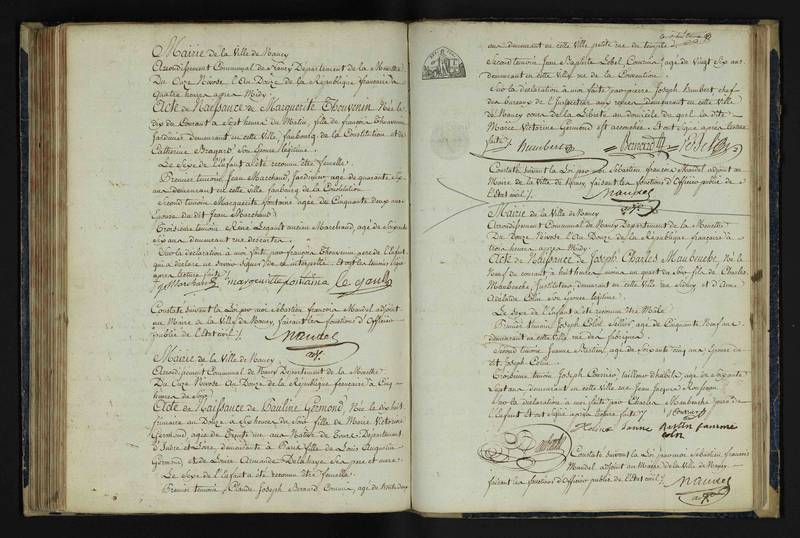 Mairie de la Ville de Nancy
Arrondissement Communal de Nancy Département de la Meurthe
Du Onze Nivose, l'An Douze de la République française à
quatre heures après Midy.
Acte de Naissance de Marguerite Thouvenin, Née le
dix du Courant à Sept heures du Matin, fille de françois Thouvenin
Jardinier demeurant en cette Ville, faubourg de la Constitution et de
Catherine Bragard Son Epouse légitime.
Le Sexe de l'Enfant a été reconnu être femelle.
Premier temoin, Jean Marchand, Jardinier, agé de quarante six
ans demeurant en cette Ville faubourg de la Constitution
Second temoin Marguerite fontaine agée de Cinquante deux ans
Epouse du dit Jean Marchand
Troisieme temoin Rémé Legault ancien Marchand, agé de Soixante
Six ans demeurant rue
Sur la déclaration à moi faite par françois Thouvenin pere de l'Enfant
qui a déclaré ne Savoir Signer de ce interpellé. Et ont les temoins Signé
après lecture faite
J Marchand margueritte fontaine le gault
Constaté Suivant la Loi par moi Sébastien françois Mandel adjoint
au Maire de la Ville de Nancy, faisant les fonctions d'Officier
public de l'Etat civil.
Mandel
adjt.
Mairie de la Ville de Nancy.
Arrondissement Communal de Nancy Département de la Meurthe
Du Onze Nivose An Douze de la République française à Cinq
heures du Soir.
Acte de Naissance de Pauline Germond, Née le dix huit
frimaire an Douze à Six heures du Soir fille de Marie Victoire
Germond, agée de Trente Native de Tours Département
d'Indre et Loire, demeurante à Paris fille de Louis Augustin
Germond et de Louise Armande Delahaye Ses pere et mere.
Le Sexe de l'Enfant a été reconnu être femelle.
Premier temoin, Claude Joseph Bernard, Commis, agé de trente deux
ans demeurant en cette Ville petite rue du temple
Second temoin Jean Baptiste Lobel Commis, agé de Vingt Six ans
demeurant en cette Ville rue de la Convention.
Sur la déclaration à moi faite par pierre Joseph Humbert chef
des bureaux de l'Inspecteur aux vivres demeurant en cette Ville
de Nancy cours de la Liberté au domicile du quel la dite
Marie Victoire Germond est accouchée. Et ont Signé après lecture
faite
humbert Bernard
Constaté Suivant la Loi par moi Sébastien françois Mandel adjoint au
Maire de la Ville de Nancy faisant les fonctions d'Officier public de
l'Etat civil.
Mandel
adjt.
Mairie de la Ville de Nancy
Arrondissement Communal de Nancy Département de la Meurthe
Du Douze Nivose An Douze de la République française à
trois heures après Midy.
Acte de Naissance de Joseph Charles Maubuche, Né le
Neuf du courant à huit heures moins un quart du Soir fils de Charles
Maubuche, Instituteur demeurant en cette Ville rue et d'Anne
Adelaide Colin son Epouse légitime.
Le Sexe de l'Enfant a été reconnu être Mâle
Premier temoin, Joseph Colin, Sellier, agé de Cinquante Neuf ans
demeurant en cette Ville rue des fabriques
Second temoin Jeanne Bastien, agée de Soixante cinq ans Epouse du
dit Joseph Colin
Troisieme temoin Joseph tailleur d'habits, agé de Soixante
Sept ans demeurant en cette Ville rue Jean Jacques Rousseau
Sur la déclaration à moi faite par Charles Maubuche pere de
l'Enfant Et ont Signé après lecture faite
J Colin Jeanne Bastien famme
colin
Constaté Suivant la Loi par moi Sébastien françois
Mandel, adjoint au Maire de la Ville de Nancy
faisant les fonctions d'Officier public de l'Etat civil
Mandel
adjt.